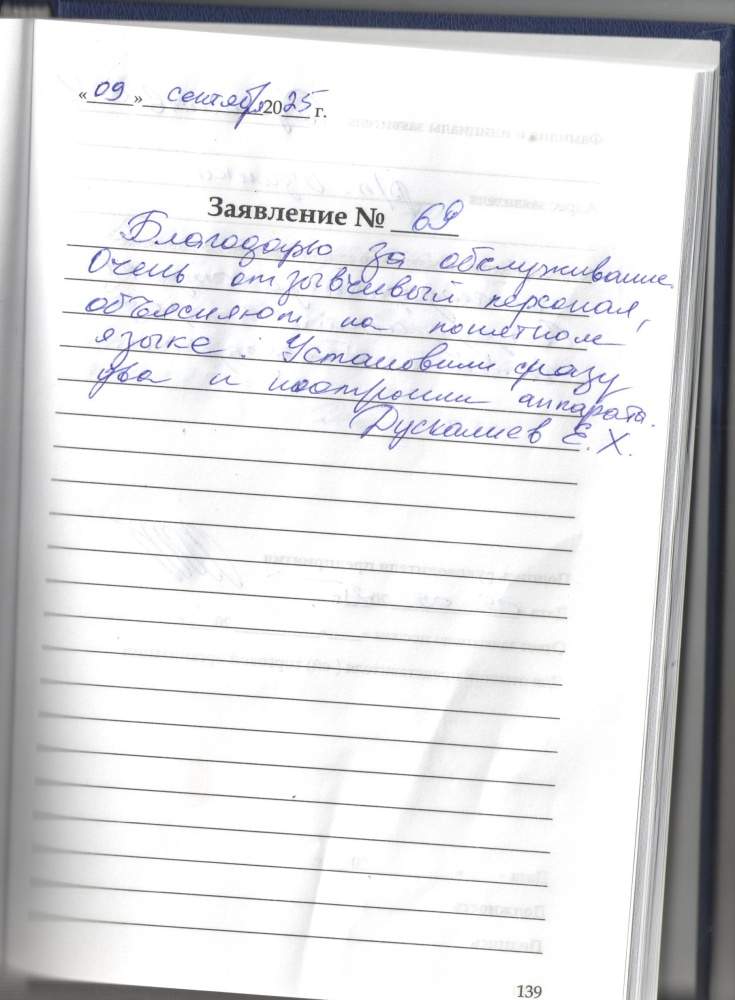 «09» сентября 2025 г.
Заявление № 69
Благодарю за обслуживание.
Очень отзывчивый персонал,
объясняют на понятном
языке. Установили сразу
два и настроили аппарата.
Рускалиев Е.Х.
139